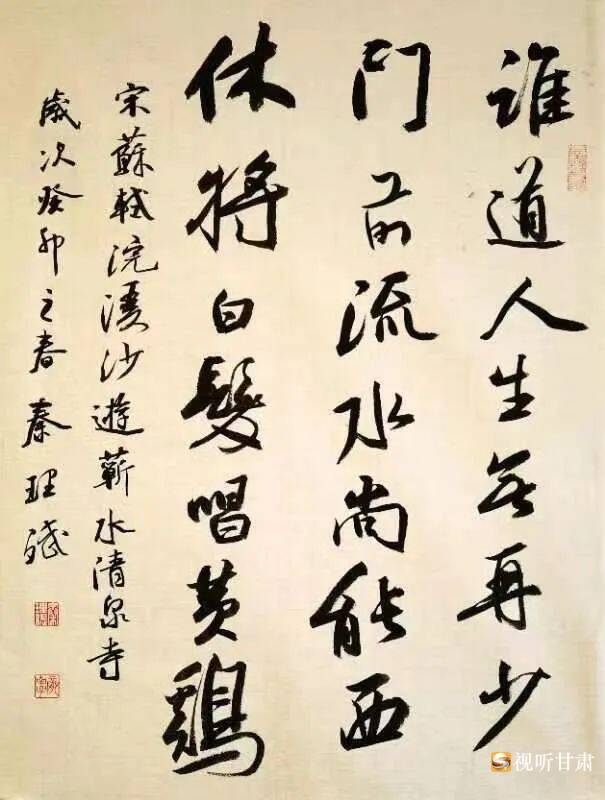 誰道人生無再少
門前流水尚能西
休將白髮唱黃鷄
宋蘇軾浣溪沙遊蘄水清泉寺
歲次癸卯之春秦理斌
视听甘肃